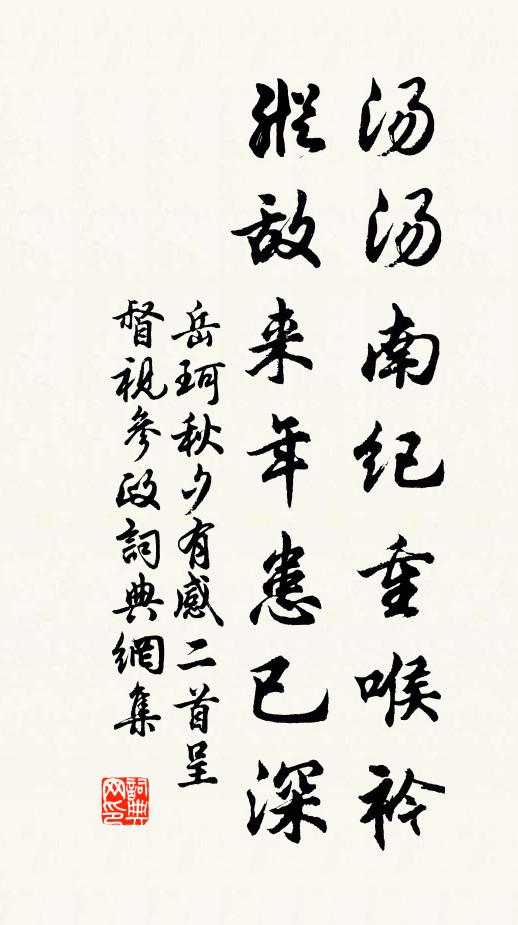 汤汤南纪重喉衿
縱敌来年患已深
岳珂秋夕有感二首呈
督視參政詞典網集
詞典网印